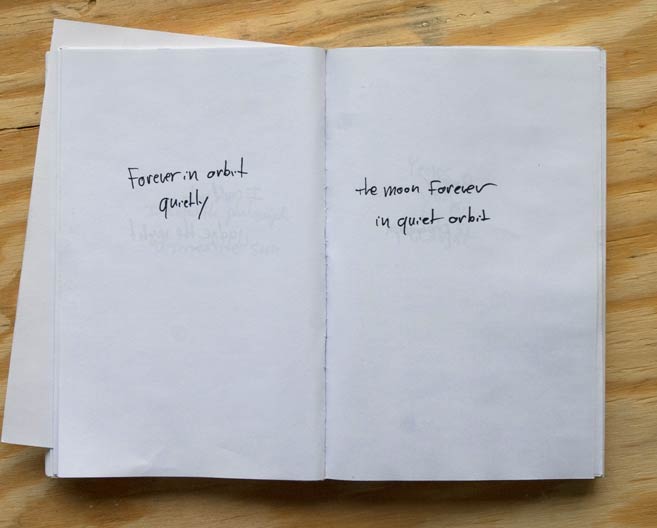 Forever in orbit
quietly
the moon Forever
in quiet orbit